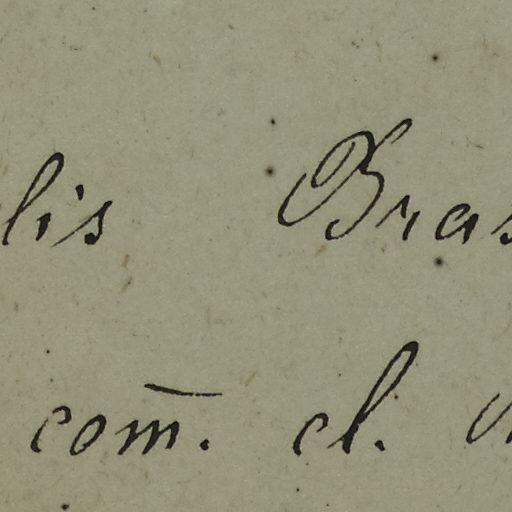 lis Bras
com̄. cl.